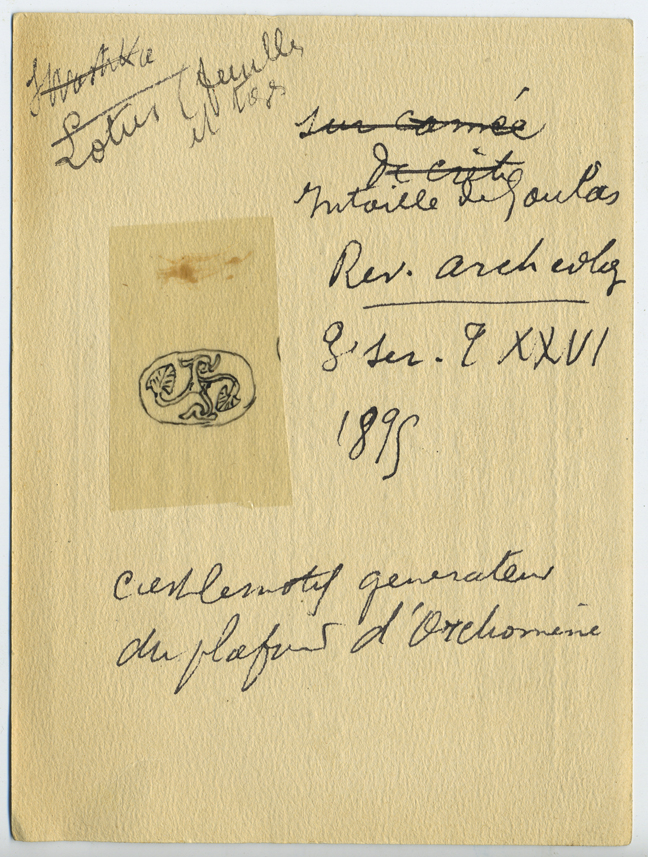 Swastika
Lotus (feuilles
et
sur camée
de crète
Intaille de Goulas
Rev. archeolog
3e ser. T XXVI
1895
c'est le motif generateur
du plafond d'Orchomène